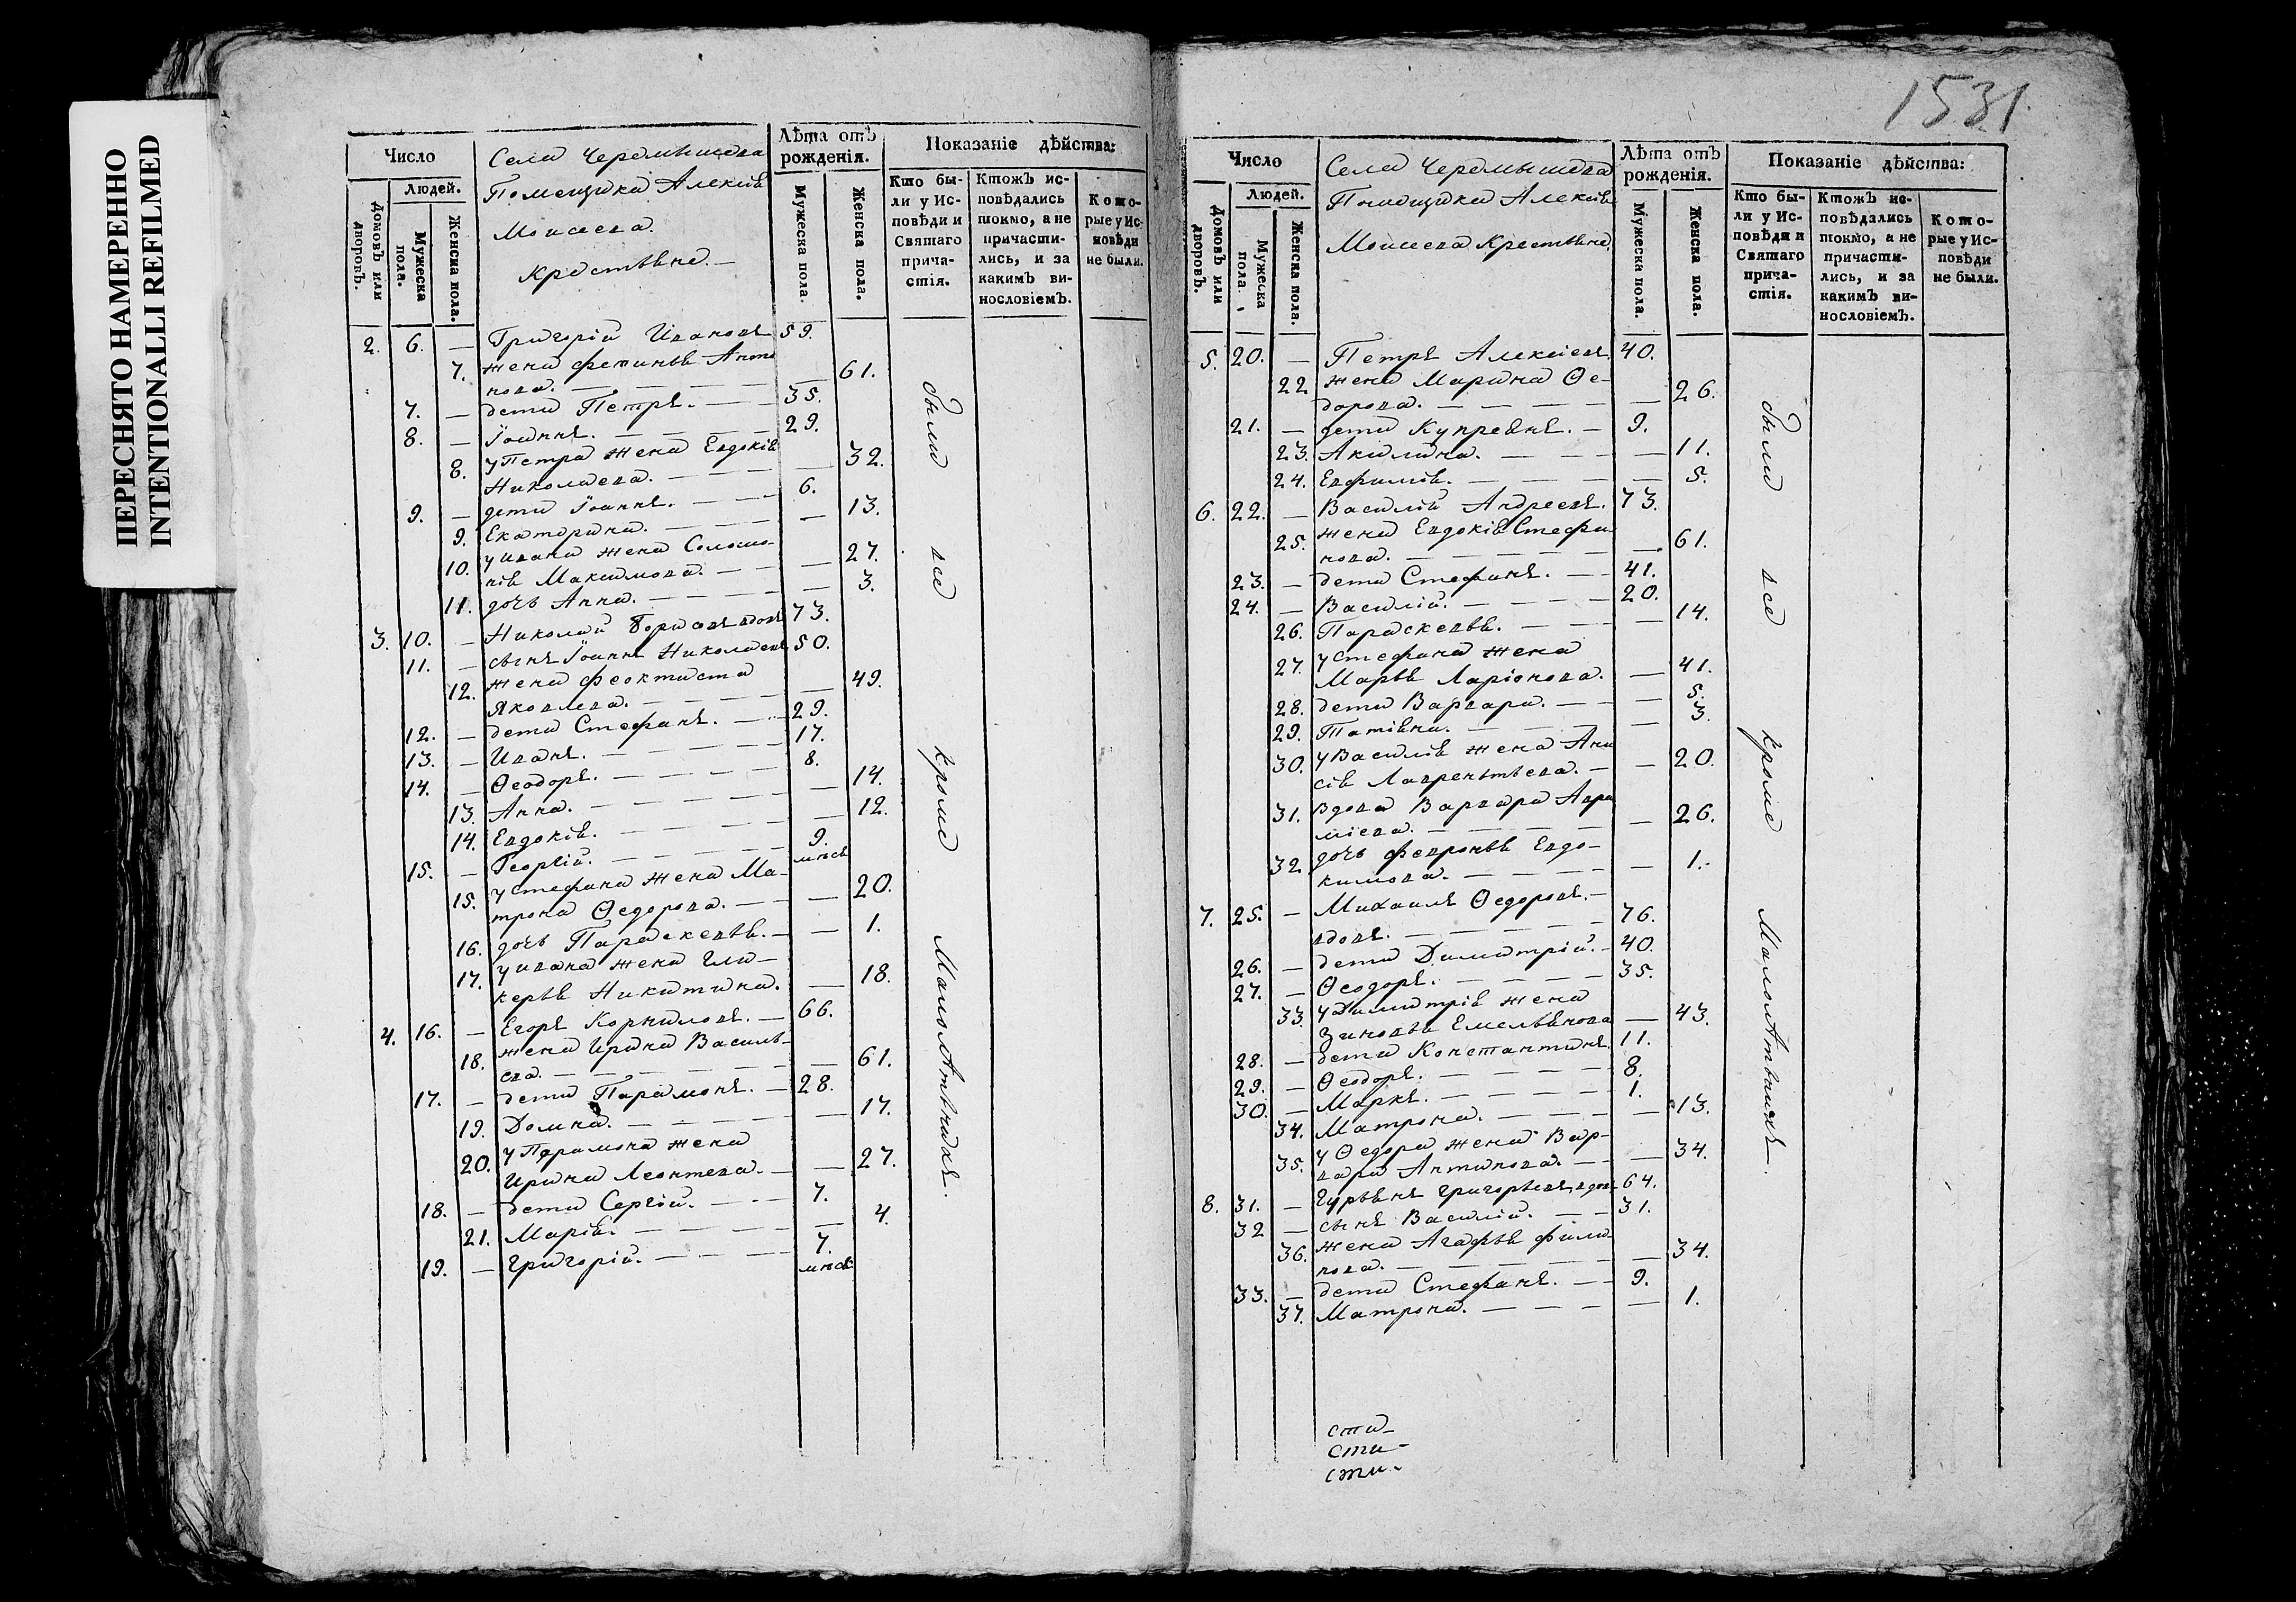 ПЕРЕСНЯТО НАМЕРЕННО
INTENTIONALLI REFILMED
Число
Людей.
Домовъ или дворовъ.
Мужеска пола.
Женска пола.
Села Черемышева
Помещика Алексѣя
Моисеева
Крестьяне.
Лѣта отъ рожденія.
Мужеска пола.
Женска пола.
Показаніе дѣйства:
Кто были у Исповѣди и Святаго причастія.
Ктожъ исповѣдались токмо, а не причастились, и за какимъ винословіемъ.
Которые у Исповѣди не были.
2. 6. — Григорій Ивановъ 59.
7. жена Фетинья Анто
нова. — 61.
7. — дети Петръ. 35.
8. — Іоаннъ. 29.
8. у Петра жена Евдокія
Николаева. — 32.
9. — дети Іоаннъ. 6.
9. Екатерина. — 13.
10. у ивана жена Соломо-
нія Максимова. — 27.
11. дочь Анна. — 3.
3. 10. — Николай Борисовъ вдовъ 73.
11. — сынъ Іоаннъ Николаевъ 50.
12. жена Феоктиста
Яковлева. — 49.
12. — дети Стефанъ. 29.
13. — Иванъ. 17.
14. — Ѳеодоръ. 8.
13. Анна. — 14.
14. Евдокія. — 12.
15. — Георгій. 9. мѣся
15. у Стефана жена Ма-
трона Ѳедорова. — 20.
16. дочь Параскевья. — 1.
17. у ивана жена Гли-
керья Никитина. — 18.
4. 16. — Егоръ Корниловъ. 66.
18. жена Ирина Василь-
ева. — 61.
17. — дети Парамонъ. 28.
19. Домна. — 17.
20. у Парамона жена
Ирина Леонтева. — 27.
18. — дети Сергій. 7.
21. Марія. — 4.
19. — Григорій. 7. мѣся
были все кроме Малолѣтныхъ.
1531
Число
Людей.
Домовъ или дворовъ.
Мужеска пола.
Женска пола.
Села Черемышева
Помещика Алексѣя
Моисеева Крестьяне
Лѣта отъ рожденія.
Мужеска пола.
Женска пола.
Показаніе дѣйства:
Кто были у Исповѣди и Святаго причастія.
Ктожъ исповѣдались токмо, а не причастились, и за какимъ винословіемъ.
Которые у Исповѣди не были.
5. 20. — Петръ Алексеевъ 40.
22 жена Марина Ѳе-
дорова. — 26.
21. — дети Купреянъ. 9.
23. Акилина. — 11.
24. Евфимія. — 5.
6. 22. — Василій Андреевъ. 73.
25. жена Евдокія Стефа
нова. — 61.
23. — дети Стефанъ. 41.
24. — Василій. 20.
26. Параскевья. — 14.
27. у Стефана жена
Марья Ларіонова. — 41.
28. дети Варвара. — 5.
29. Татіяна. — 3.
30. у Василія жена Ани
сія Лаврентьева. — 20.
31. вдова Варвара Авра
міева. — 26.
32 дочь Февронья Евдо-
кимова. — 1.
7. 25. — Михаилъ Ѳедоровъ. —
вдовъ. 76.
26. — дети Димитрій. 40.
27. — Ѳеодоръ. 35.
33. у Димитрія жена
Зиновья Емельянова — 43.
28. — дети Константинъ. 11.
29. — Ѳеодоръ. 8.
30. — Маркъ. 1.
34. Матрона. — 13.
35. у Ѳедора жена Вар-
вара Антипова. — 34.
8. 31. — Гурьянъ Григорьевъ, вдов 64.
32 — сынъ Василій. 31.
36. жена Агафья Фили
пова. — 34.
33. — дети Стефанъ. 9.
37. Матрона. — 1.
были все кроме Малолѣтныхъ.
сти-
сти-
сти-